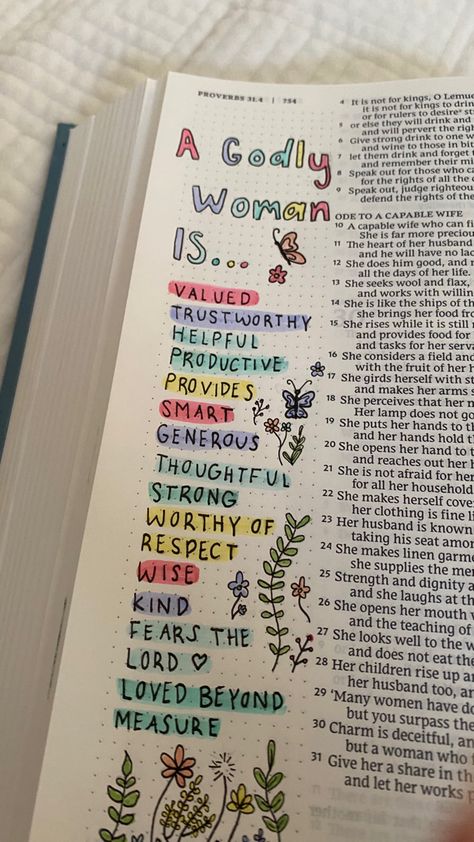 PROVERBS 31:4 | 754
A Godly
Woman
Is...
VALUED
TRUSTWORTHY
HELPFUL
PRODUCTIVE
PROVIDES
SMART
GENEROUS
THOUGHTFUL
STRONG
WORTHY OF
RESPECT
WISE
KIND
FEARS THE
LORD ♡
LOVED BEYOND
MEASURE
4 It is not for kings, O Lemue
it is not for kings to drin
or for rulers to desire
5 or else they will drink and
and will pervert the righ
6 Give strong drink to one w
and wine to those in bit
7 let them drink and forget t
and remember their mi
8 Speak out for those who ca
for the rights of all the
9 Speak out, judge righteou
defend the rights of the
ODE TO A CAPABLE WIFE
10 A capable wife who can fi
She is far more preciou
11 The heart of her husband
and he will have no lac
12 She does him good, and
all the days of her life.
13 She seeks wool and flax,
and works with willin
14 She is like the ships of th
she brings her food fro
15 She rises while it is still
and provides food for
and tasks for her serva
16 She considers a field and
with the fruit of her
17 She girds herself with s
and makes her arms s
18 She perceives that her
Her lamp does not g
19 She puts her hands to t
and her hands hold t
20 She opens her hand to
and reaches out her
21 She is not afraid for her
for all her household
22 She makes herself cove
her clothing is fine li
23 Her husband is known
taking his seat amon
24 She makes linen garme
she supplies the mer
25 Strength and dignity a
and she laughs at the
26 She opens her mouth
and the teaching of
27 She looks well to the w
and does not eat the
28 Her children rise up a
her husband too, an
29 'Many women have do
but you surpass the
30 Charm is deceitful, an
but a woman who
31 Give her a share in th
and let her works